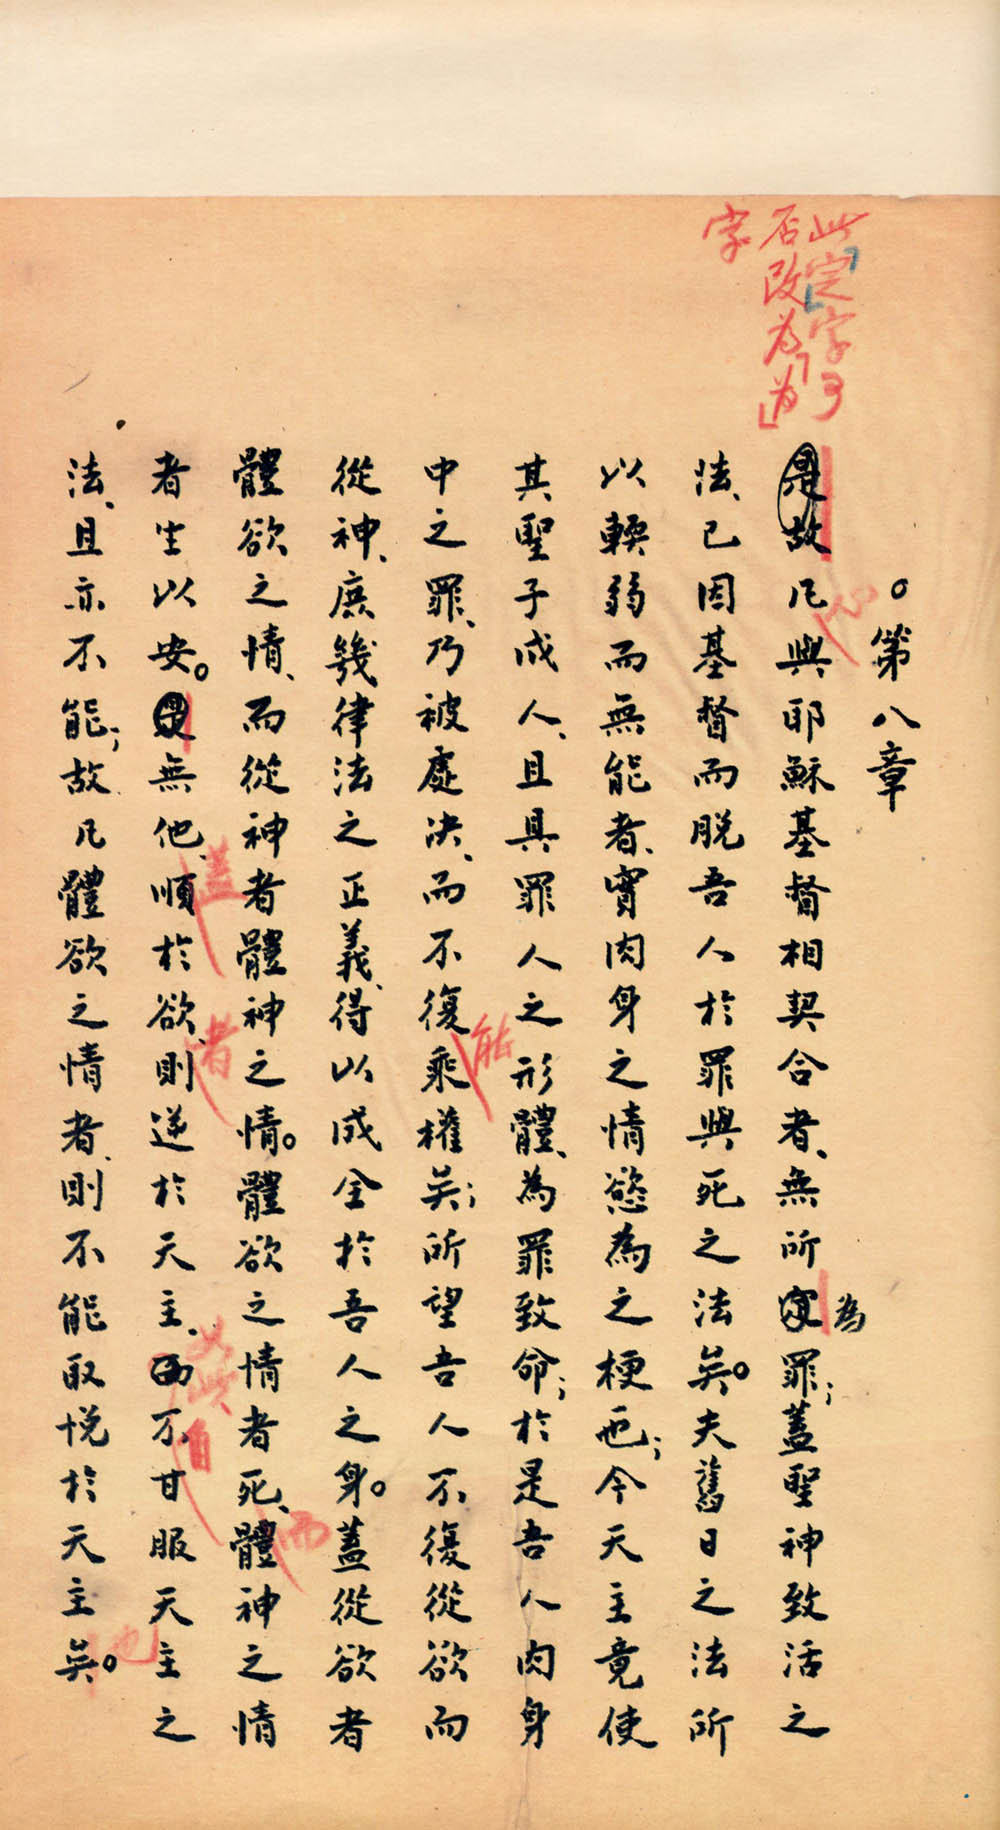 此定字可
否改為「為」
字
。第八章
是故凡與耶穌基督相契合者、無所定罪；蓋聖神致活之
心
為
法、已因基督而脫吾人於罪與死之法矣。夫舊日之法所
以輭弱而無能者、實肉身之情慾為之梗也；今天主竟使
其聖子成人、且具罪人之形體、為罪致命；於是吾人肉身
中之罪、乃被處決、而不復乘權矣；所望吾人不復從欲而
能
從神、庶幾律法之正義、得以成全於吾人之身。蓋從欲者
體欲之情、而從神者體神之情。體欲之情者死、體神之情
而
者生以安。是無他、順於欲、則逆於天主、而不甘服天主之
蓋
者
自
法、且亦不能；故凡體欲之情者、則不能取悅於天主矣。
也